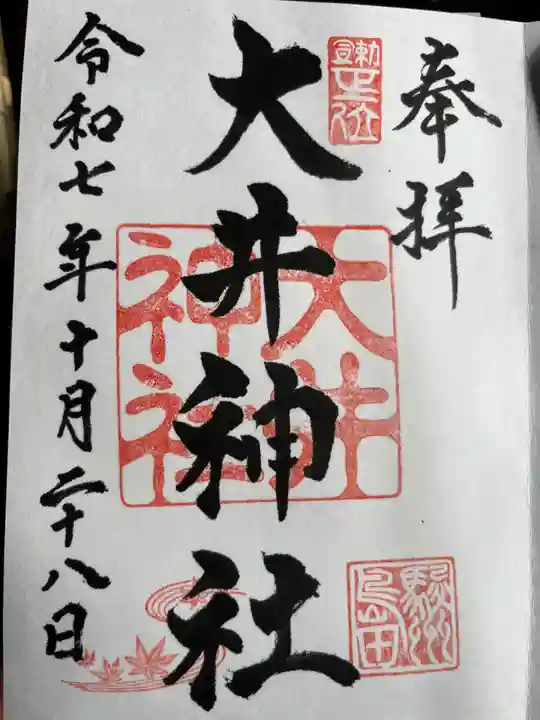 奉拝
勅宣正一位
大井神社
大井神社
駿州島田
令和七年十月二十八日